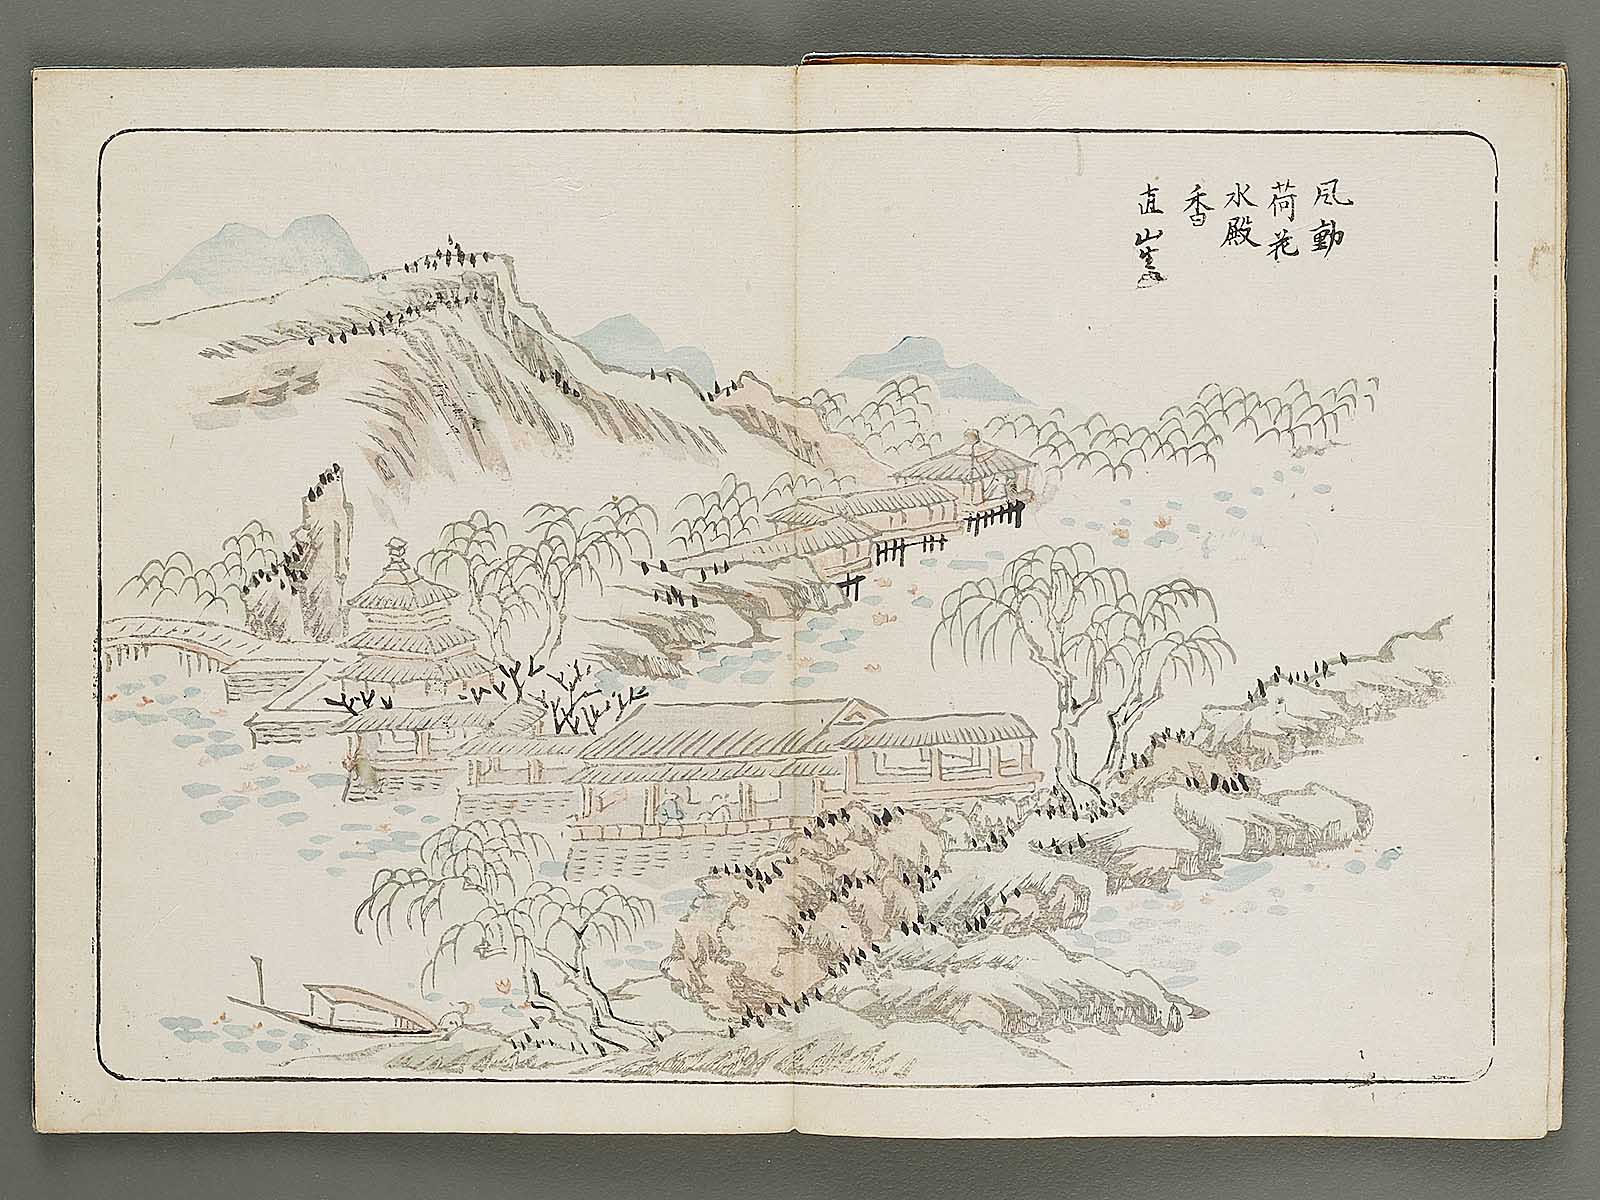 風動
荷花
水殿
香
直山寫